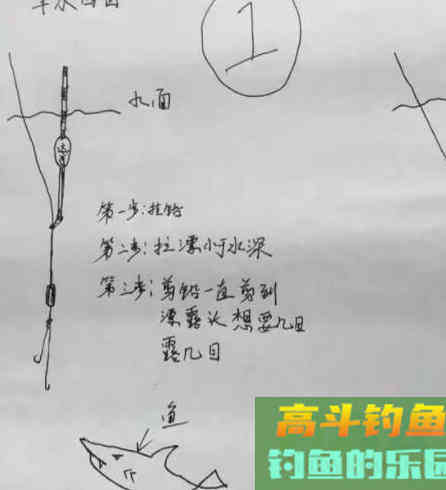 1
水面
第一步:挂铅
第二步:拉漂小于水深
第三步:剪铅一直剪到
漂露头想要几目
露几目
鱼
高斗钓鱼
钓鱼的乐园